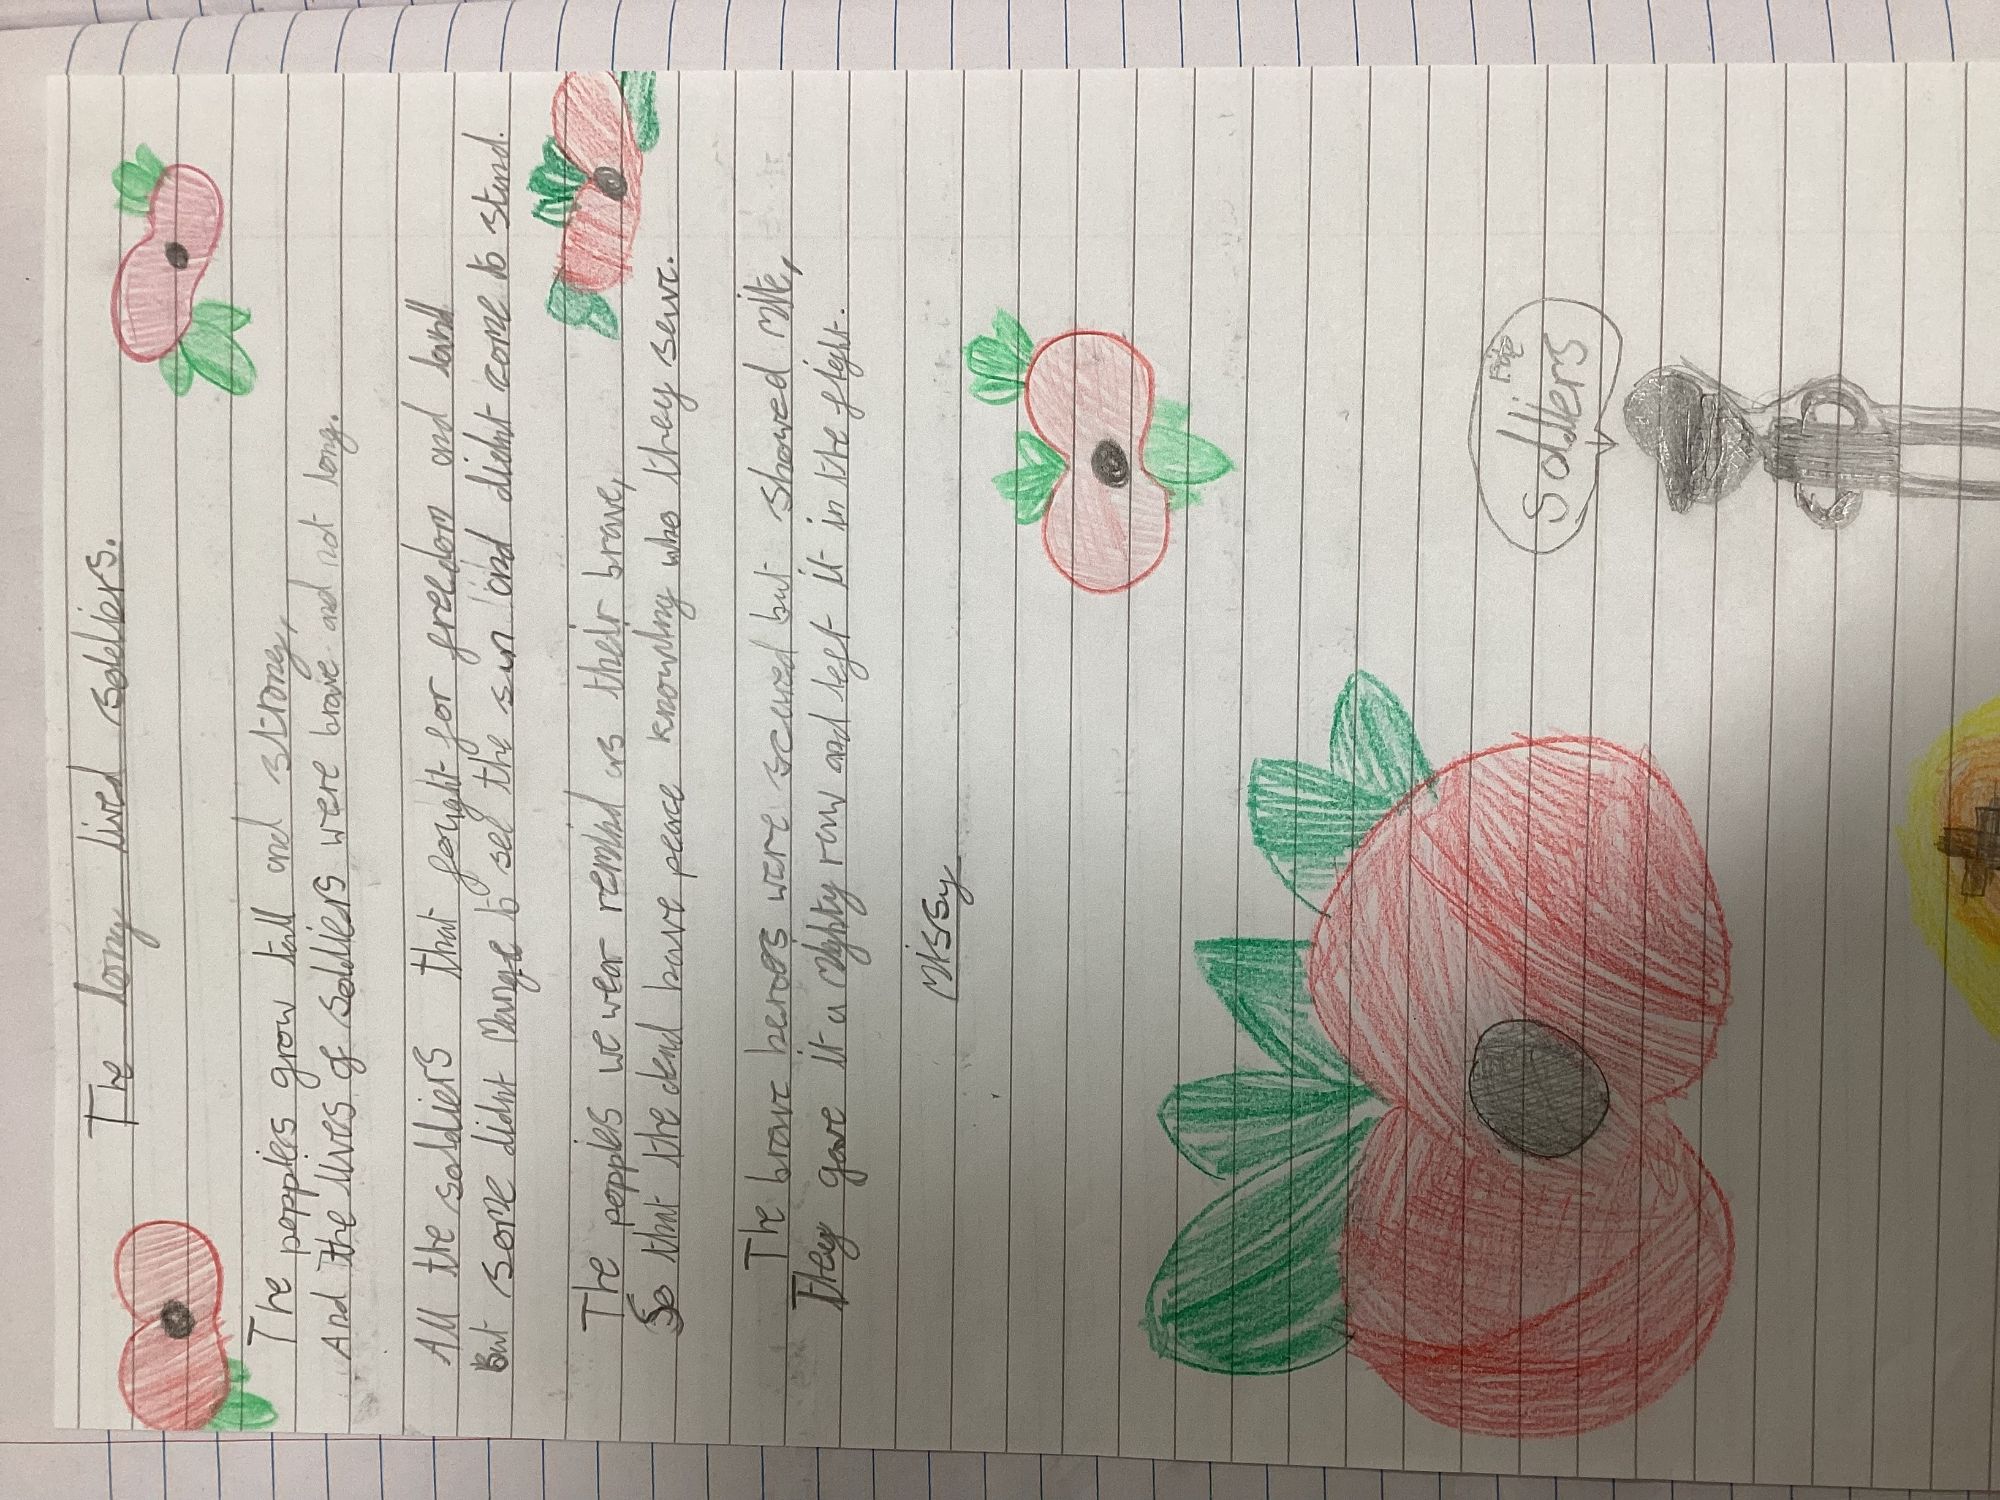 The long lived soldiers.
The poppies grow tall and strong,
And the lives of soldiers were brave and not long.
All the soldiers that fought for freedom and land
But some didnt mange to see the sun and didnt come to stand.
The poppies we wear remind us their brave,
So that the dead have peace knowing who they serve.
The brave heroes were scared but showed mite,
They gave it a mighty row and left it in the fight.
Missy
RIP
soldiers